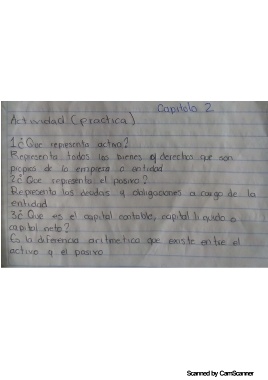 Capitolo 2
Actividad (practica)
1¿Que representa activo?
Representa todos los bienes y derechos que son
propios de la empresa o entidad
2¿Que representa el pasivo?
Representa las deudas y obligaciones a cargo de la
entidad
3¿Que es el capital contable, capital liquido o
capital neto?
Es la diferencia aritmetica que existe entre el
activo y el pasivo
Scanned by CamScanner